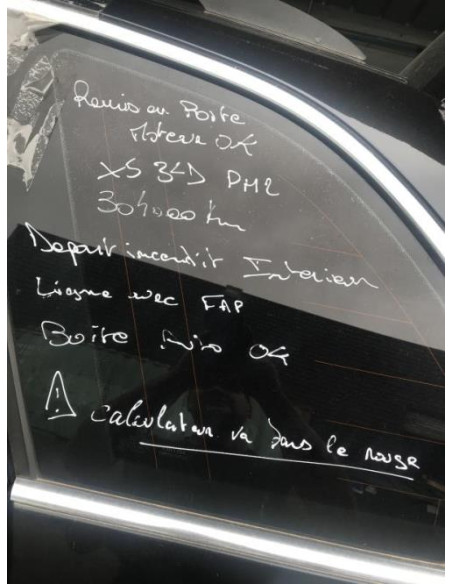 Remis en Route
Moteur OK
X5 3LD PH2
304000 km
Depart incendit Interieur
Ligne avec FAP
Boite Auto OK
⚠ calculateur va dans le rouge